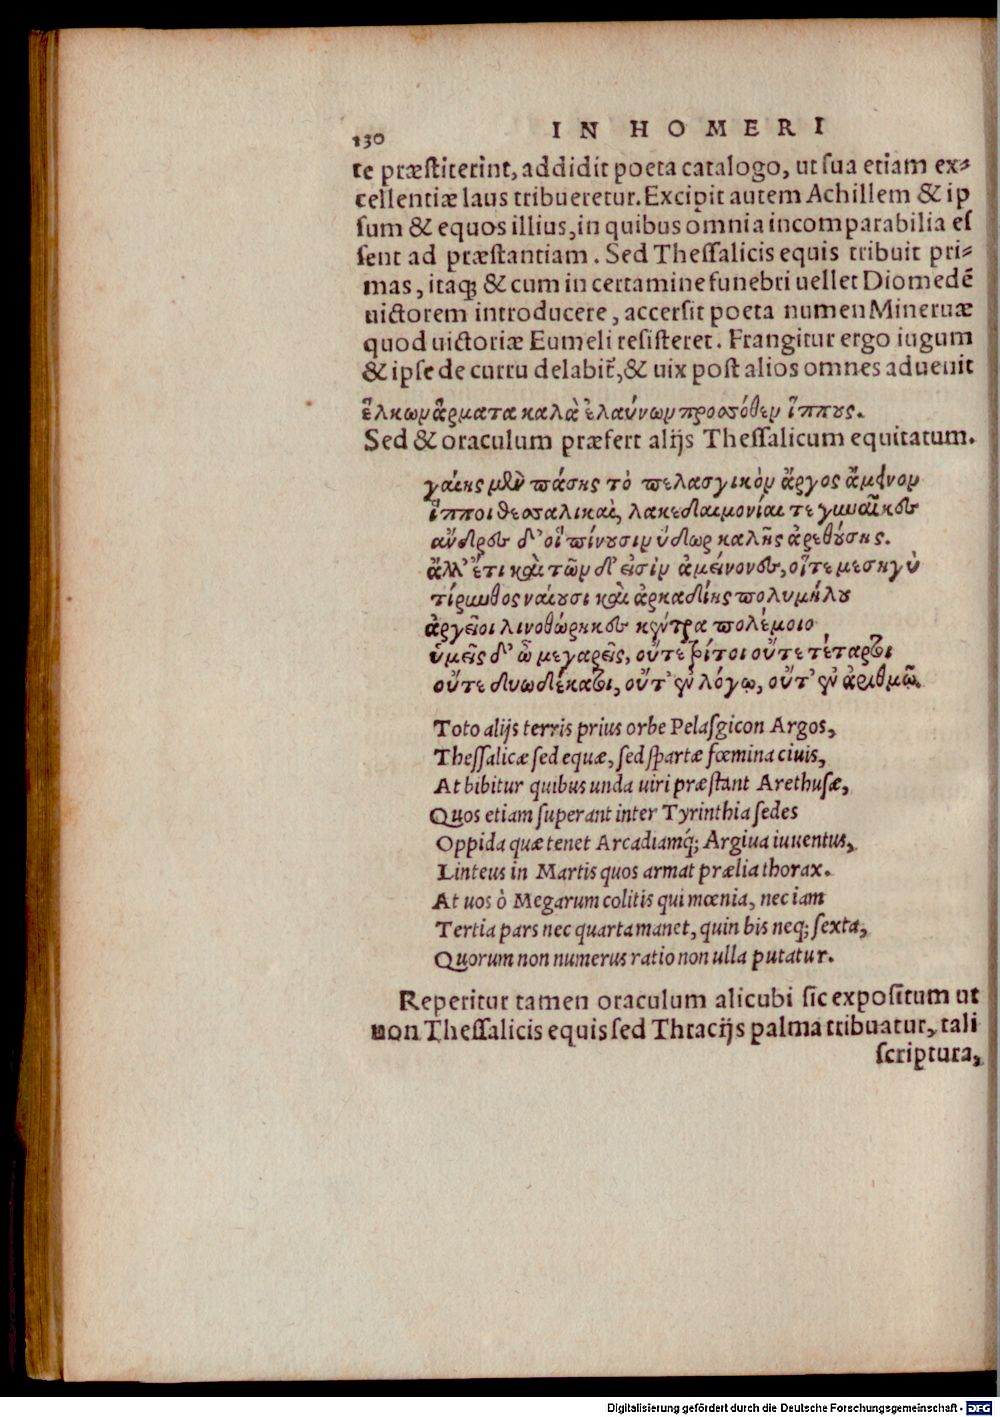 130 IN HOMERI
te præstiterint, addidit poeta catalogo, ut sua etiam ex⸗
cellentiæ laus tribueretur. Excipit autem Achillem & ip
sum & equos illius, in quibus omnia incomparabilia es
sent ad præstantiam. Sed Thessalicis equis tribuit pri⸗
mas, itaq; & cum in certamine funebri uellet Diomedẽ
uictorem introducere, accersit poeta numen Mineruæ
quod uictoriæ Eumeli resisteret. Frangitur ergo iugum
& ipse de curru delabit᷑, & uix post alios omnes aduenit
ἕλκων ἅρματα καλὰ ἐλαύνων προσσόθεν ἵππους.
Sed & oraculum præfert alijs Thessalicum equitatum.
γαίης μὲν πάσης τὸ πελασγικὸν ἄργος ἄμεινον
ἵπποι θεσσαλικαὶ, λακεδαιμονίαι τε γυναῖκες
ἄνδρες δ' οἳ πίνουσιν ὕδωρ καλῆς ἀρεθούσης.
ἀλλ' ἔτι καὶ τῶν δ' εἰσὶν ἀμείνονες, οἵτε μεσηγὺ
τίρυνθος ναίουσι καὶ ἀρκαδίης πολυμήλου
ἀργεῖοι λινοθώρηκες κέντρα πολέμοιο
ὑμεῖς δ' ὦ μεγαρεῖς, οὔτε τρίτοι οὔτε τέταρτοι
οὔτε δυωδέκατοι, οὔτ' ἐν λόγῳ, οὔτ' ἐν ἀριθμῷ.
Toto alijs terris prius orbe Pelasgicon Argos,
Thessalicæ sed equæ, sed spartæ fœmina ciuis,
At bibitur quibus unda uiri præstant Arethusæ,
Quos etiam superant inter Tyrinthia sedes
Oppida quæ tenet Arcadiamq́; Argiua iuuentus,
Linteus in Martis quos armat prælia thorax.
At uos ò Megarum colitis qui mœnia, nec iam
Tertia pars nec quarta manet, quin bis neq; sexta,
Quorum non numerus ratio non ulla putatur.
Reperitur tamen oraculum alicubi sic expositum ut
non Thessalicis equis sed Thracijs palma tribuatur, tali
scriptura,
Digitalisierung gefördert durch die Deutsche Forschungsgemeinschaft - DFG